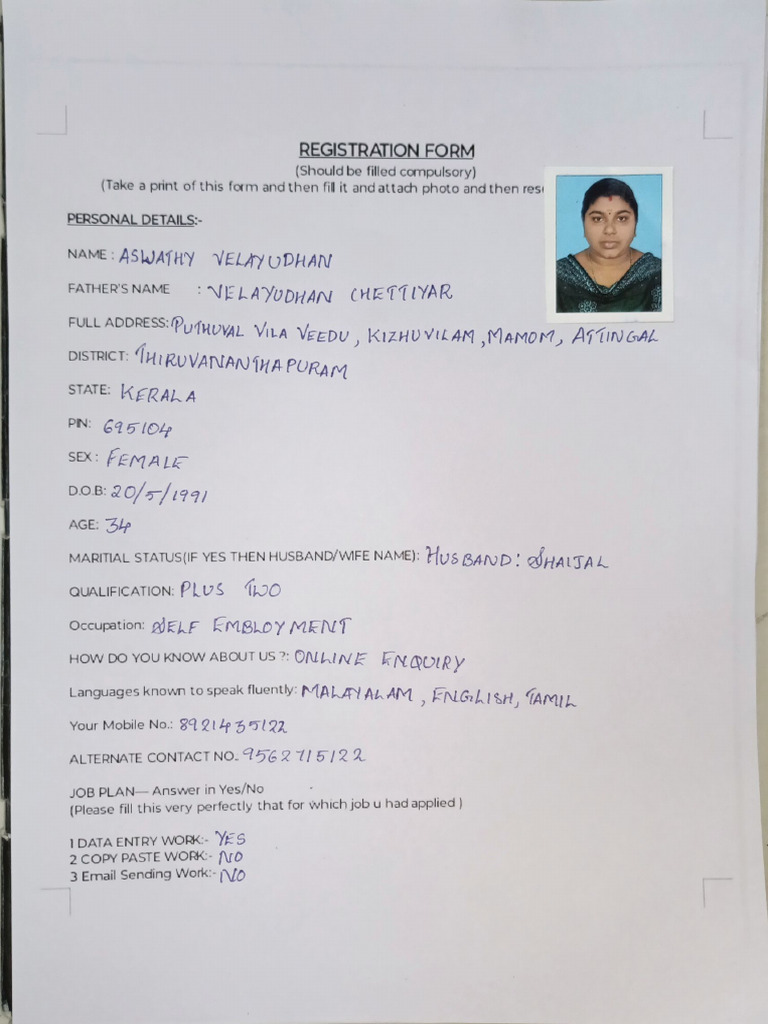 REGISTRATION FORM
(Should be filled compulsory)
(Take a print of this form and then fill it and attach photo and then
PERSONAL DETAILS:-
NAME : ASWATHY VELAYUDHAN
FATHER'S NAME : VELAYUDHAN CHETTIYAR
FULL ADDRESS: PUTHUVAL VILA VEEDU, KIZHUVILAM, MAMOM, ATTINGAL
DISTRICT: THIRUVANANTHAPURAM
STATE: KERALA
PIN: 695104
SEX : FEMALE
D.O.B: 20/5/1991
AGE: 34
MARITIAL STATUS(IF YES THEN HUSBAND/WIFE NAME): HUSBAND: SHAIJAL
QUALIFICATION: PLUS TWO
Occupation: SELF EMBLOYMENT
HOW DO YOU KNOW ABOUT US ?: ONLINE ENQUIRY
Languages known to speak fluently: MALAYALAM, ENGLISH, TAMIL
Your Mobile No.: 8921435122
ALTERNATE CONTACT NO.. 9562715122
JOB PLAN— Answer in Yes/No
(Please fill this very perfectly that for which job u had applied )
1 DATA ENTRY WORK:- YES
2 COPY PASTE WORK:- NO
3 Email Sending Work:- NO